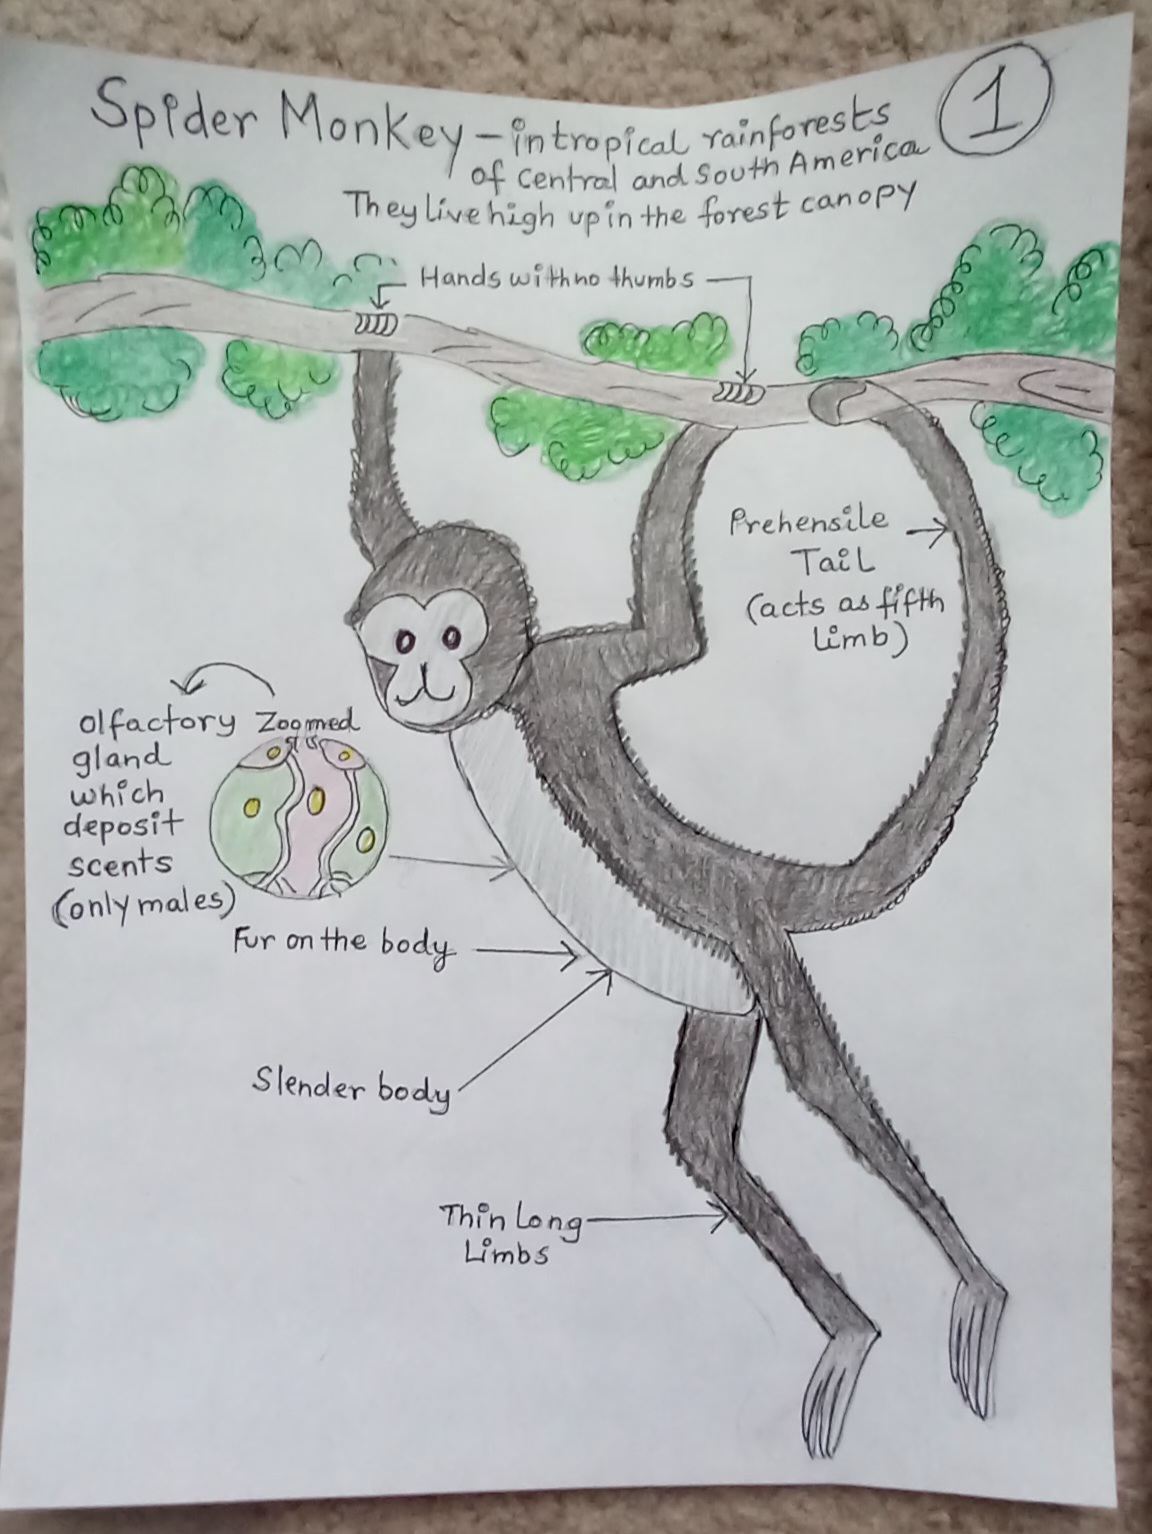 Spider Monkey - in tropical rainforests
of central and South America
They live high up in the forest canopy
1
Hands with no thumbs
Prehensile
Tail
(acts as fifth
limb)
Zoomed
olfactory
gland
which
deposit
scents
(only males)
Fur on the body
Slender body
Thin Long
Limbs